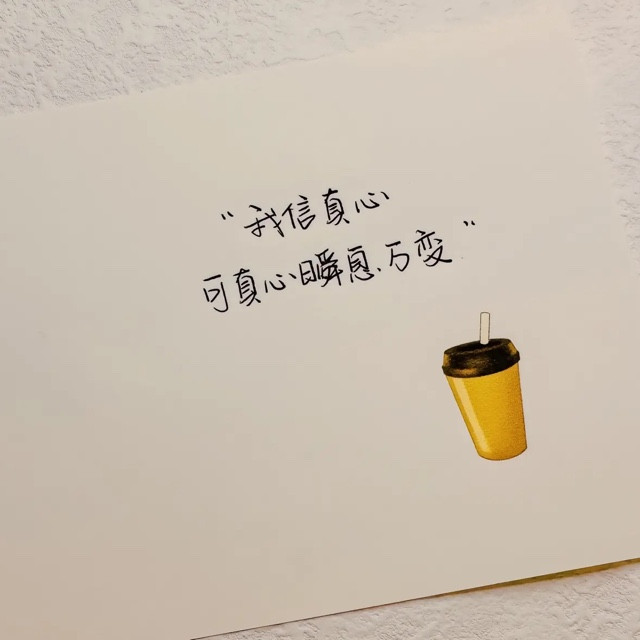 “我信真心
可真心瞬息万变”